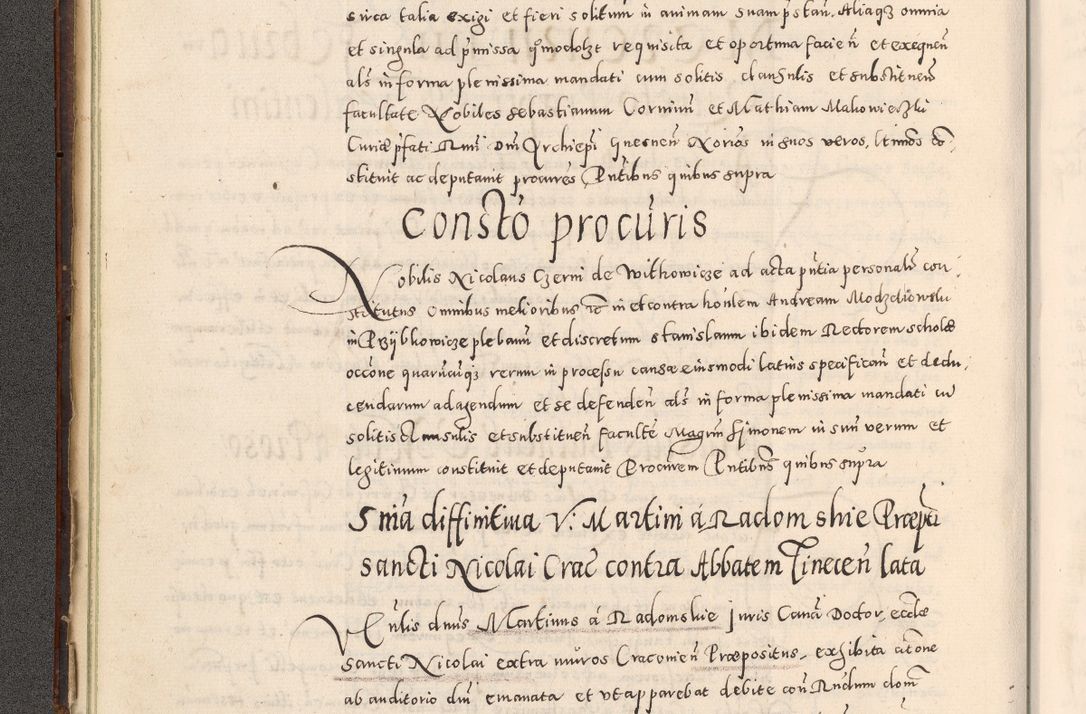 circa talia exigi et fieri solitum in animam suam pstari. Aliaqz omnia
et singula ad pmissa qmodolzt requisita et oportuna facien et exequen
als in forma plenissima mandati cum solitis clausulis et substituen
facultate Nobiles Sebastianum Cornium et Mathiam Makowieczki
Curiæ pfati Rmi Dni Archiepi Gnesnen Norios in suos veros, ltimos con,
stituit ac deputavit procures Pntibus quibus supra
Consto procuris
Nobilis Nicolaus Czerni de Withowicze ad acta pntia personalr con,
stitutus Omnibus melioribus &c in et contra honlem Andream Modzeliowski
in Przijbkowicze plebanu et discretum Stanislaum ibidem Rectorem scholæ
occone quarucuqz rerum in processu causæ eiusmodi latius specifican et dedu,
cendarum ad agendum et se defenden als in forma plenissima mandati cu
solitis clausulis et substituen facultte Magrm Simonem in suu verum et
legitimum constituit et deputavit Procurem Pntibus quibus supra
Snia diffinitiua V. Martini á Radomskie Præpti
Sancti Nicolai Crac contra Abbatem Tinecen lata
Vnlis dnus Martinus á Radomskie Juris Canu Doctor, eccliæ
Sancti Nicolai extra muros Cracovien Præpositus, exhibita citone
ab auditorio dni emanata et ut apparebat debite con Rndum dom